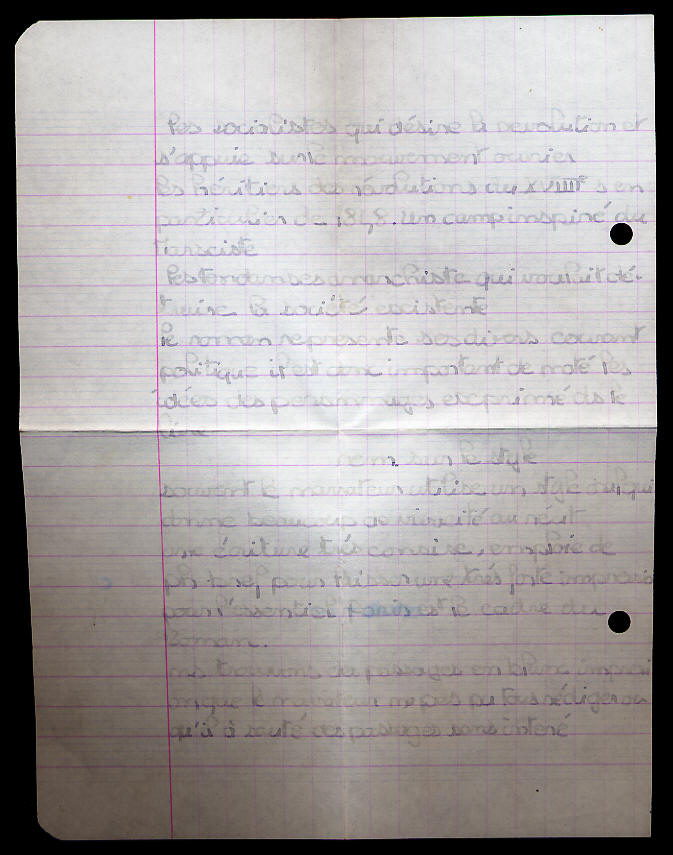 les socialistes qui désire la révolution et
s'appuie sur le mouvement ouvrier
les héritiers des révolutions du XVIIII° s en
particulier de 1848. un camp inspiré du
Les tendanses anarchiste qui voulait dé-
truire la société existente
le roman représente ses divers courant
politique il est donc important de noté les
idées des personnages exprimé ds le
livre
rem. sur le style
souvent le narrateur utilise un style qui
donne beaucoup de vivacité au récit
une écriture très concise, emploie de
ph bref pour laisser une très forte impression
pour l'essentiel Paris est le cadre du
Roman.
ns trouvons des passages en blanc
on que le narrateur n'a pas pu tous rédiger ou
qu'il à sauté des passages sans interé